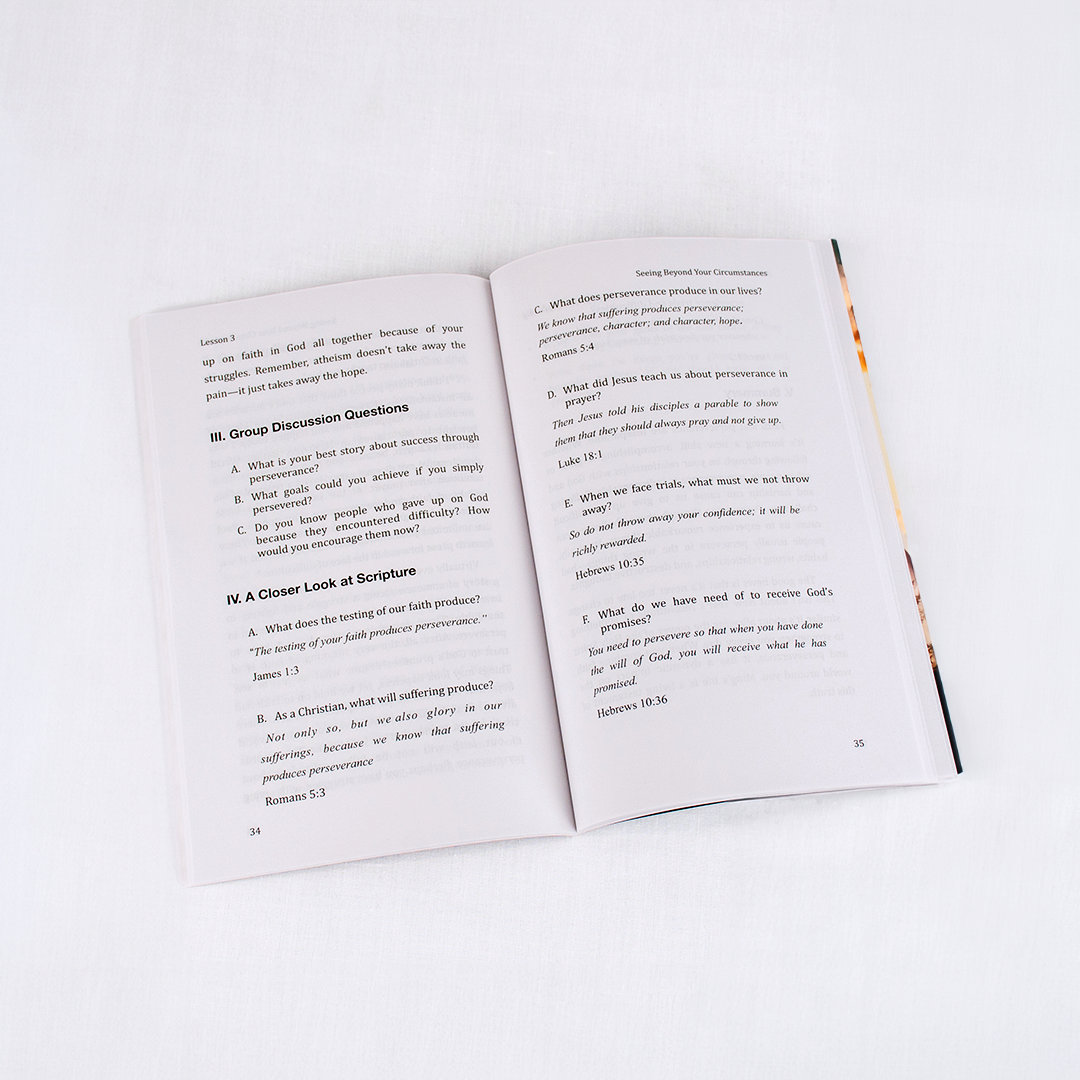 Lesson 3
up on faith in God all together because of your
struggles. Remember, atheism doesn't take away the
pain—it just takes away the hope.
III. Group Discussion Questions
A. What is your best story about success through
perseverance?
B. What goals could you achieve if you simply
persevered?
C. Do you know people who gave up on God
because they encountered difficulty? How
would you encourage them now?
IV. A Closer Look at Scripture
A. What does the testing of our faith produce?
"The testing of your faith produces perseverance."
James 1:3
B. As a Christian, what will suffering produce?
Not only so, but we also glory in our
sufferings, because we know that suffering
produces perseverance
Romans 5:3
34
Seeing Beyond Your Circumstances
C. What does perseverance produce in our lives?
We know that suffering produces perseverance;
perseverance, character; and character, hope.
Romans 5:4
D. What did Jesus teach us about perseverance in
prayer?
Then Jesus told his disciples a parable to show
them that they should always pray and not give up.
Luke 18:1
E. When we face trials, what must we not throw
away?
So do not throw away your confidence; it will be
richly rewarded.
Hebrews 10:35
F. What do we have need of to receive God's
promises?
You need to persevere so that when you have done
the will of God, you will receive what he has
promised.
Hebrews 10:36
35